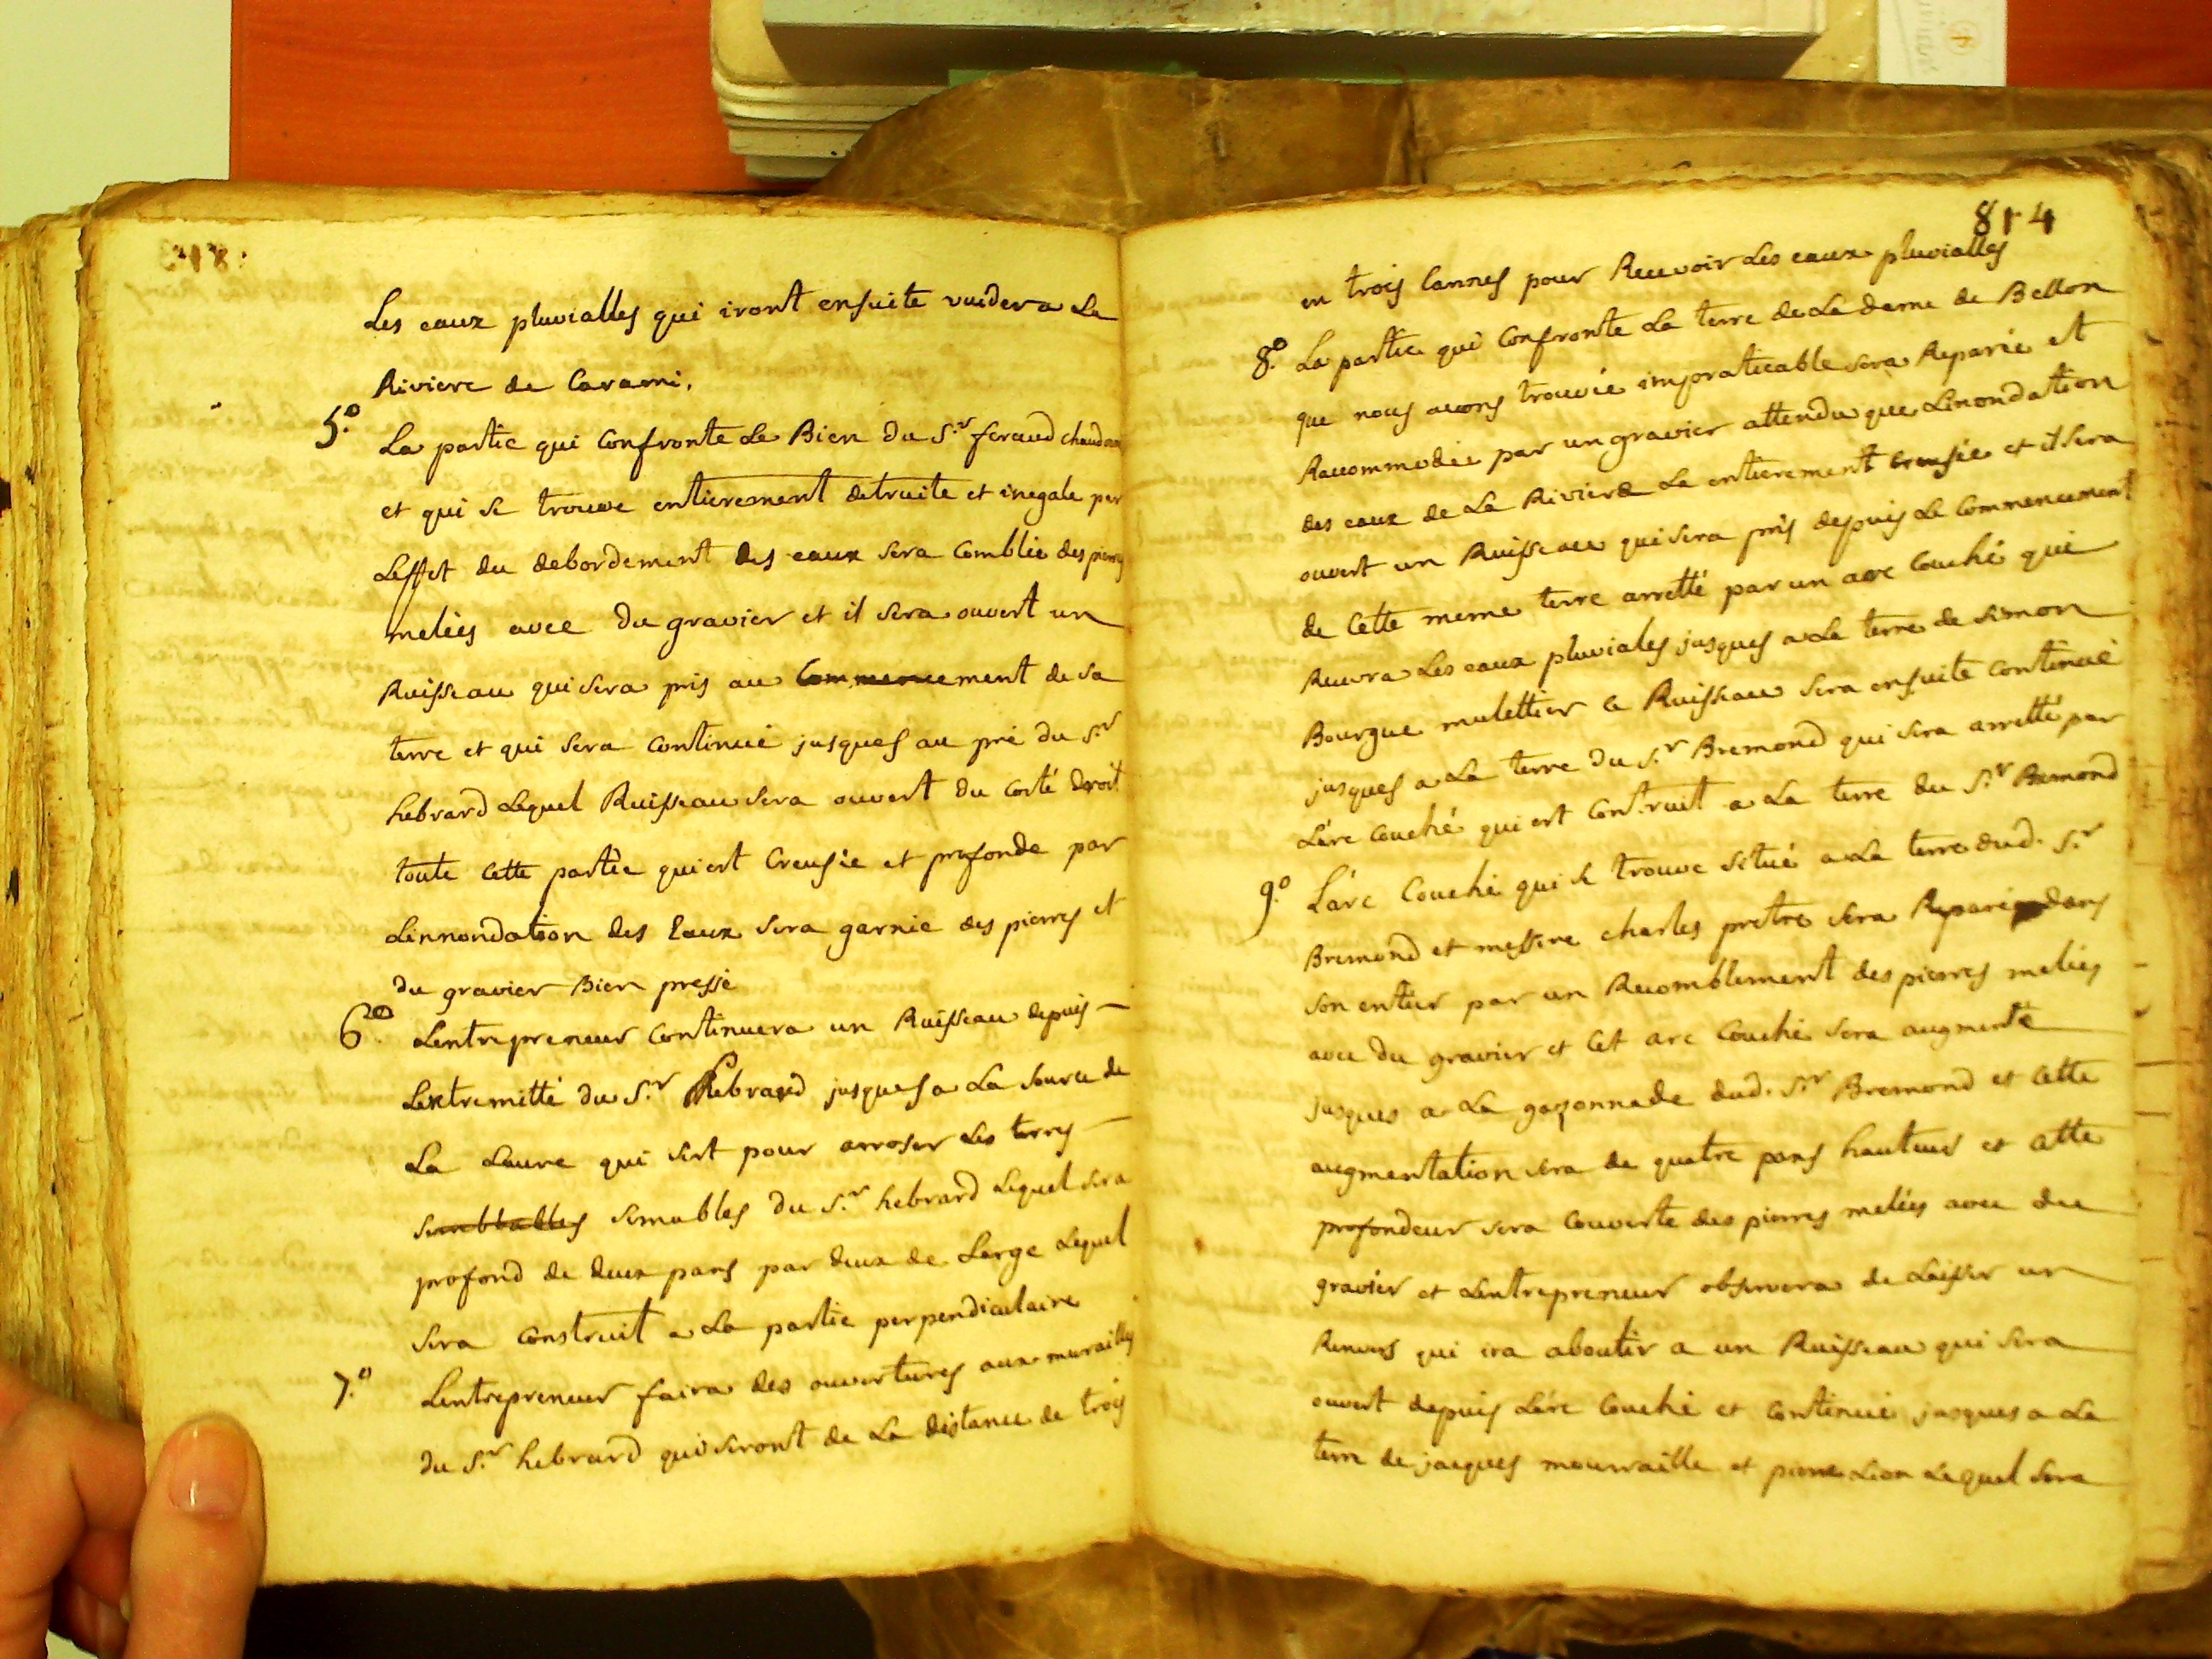 Les eaux pluvialles qui iront ensuite vuider a La
Riviere de Carami.
5.º La partie qui Confronte Le Bien du S.r feraud
et qui se trouve entierement detruite et inegale par
Leffet du debordement des eaux sera Comblée des pierres
melées avec du gravier et il sera ouvert un
Ruisseau qui sera pris au Commencement de sa
terre et qui sera Continué jusques au pré du S.r
hebrard Lequel Ruisseau sera ouvert du Costé droit
toute Cette partie qui est Creusée et profonde par
Linnondation des Eaux sera garnie des pierres et
du gravier Bien pressé
6.º Lentrepreneur Continuera un Ruisseau depuis
Lextremitté du S.r hebrard jusques a La source de
La Laure qui sert pour arroser Les terres
semblables semables du S.r hebrard Lequel sera
profond de deux pans par deux de Large Lequel
sera Construit a La partie perpendiculaire
7.º Lentrepreneur faira des ouvertures aux murailles
du S.r hebrard qui seront de La distance de trois
814
en trois Cannes pour Recevoir Les eaux pluvialles
8.º La partie qui Confronte La terre de La dame de Bellon
que nous avons trouvée impraticable sera Reparée et
Racommodée par un gravier attendu que Linondation
des eaux de La Riviere La entierement creusée et il sera
ouvert un Ruisseau qui sera pris depuis Le Commencement
de Cette meme terre arretté par un arc Couché qui
Recevra Les eaux pluviales jusques a La terre de simon
Bourgue mulettier Ce Ruisseau sera ensuite Continué
jusques a La terre du S.r Bremond qui sera arretté par
L'arc Couché qui est Construit a La terre du S.r Bremond
9.º L'arc Couché qui se trouve situé a La terre dud. S.r
Bremond et messire charles pretre sera Reparé dans
son entier par un Recomblement des pierres melées
avec du gravier et Cet arc Couché sera augmenté
jusques a La gazonnade dud. S.r Bremond et Cette
augmentation sera de quatre pans hauteur et Cette
profondeur sera Couverte des pierres melées avec du
gravier et Lentrepreneur observera de Laisser un
Renvers qui ira aboutir a un Ruisseau qui sera
ouvert depuis L'arc Couché et Continué jusques a La
terre de jacques mourraille et pierre Lion Lequel sera